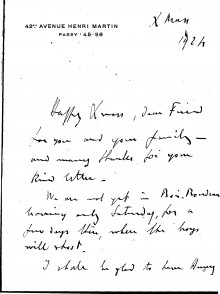 42bis AVENUE HENRI MARTIN
PASSY : 45-58
X Mass
1924
Happy Xmass, dear Friend
for you and your family —
and many thanks for your
kind letter. —
We are not yet in
leaving only Saturday, for a
few days there, where the boys
will shoot.
I shall be glad to have